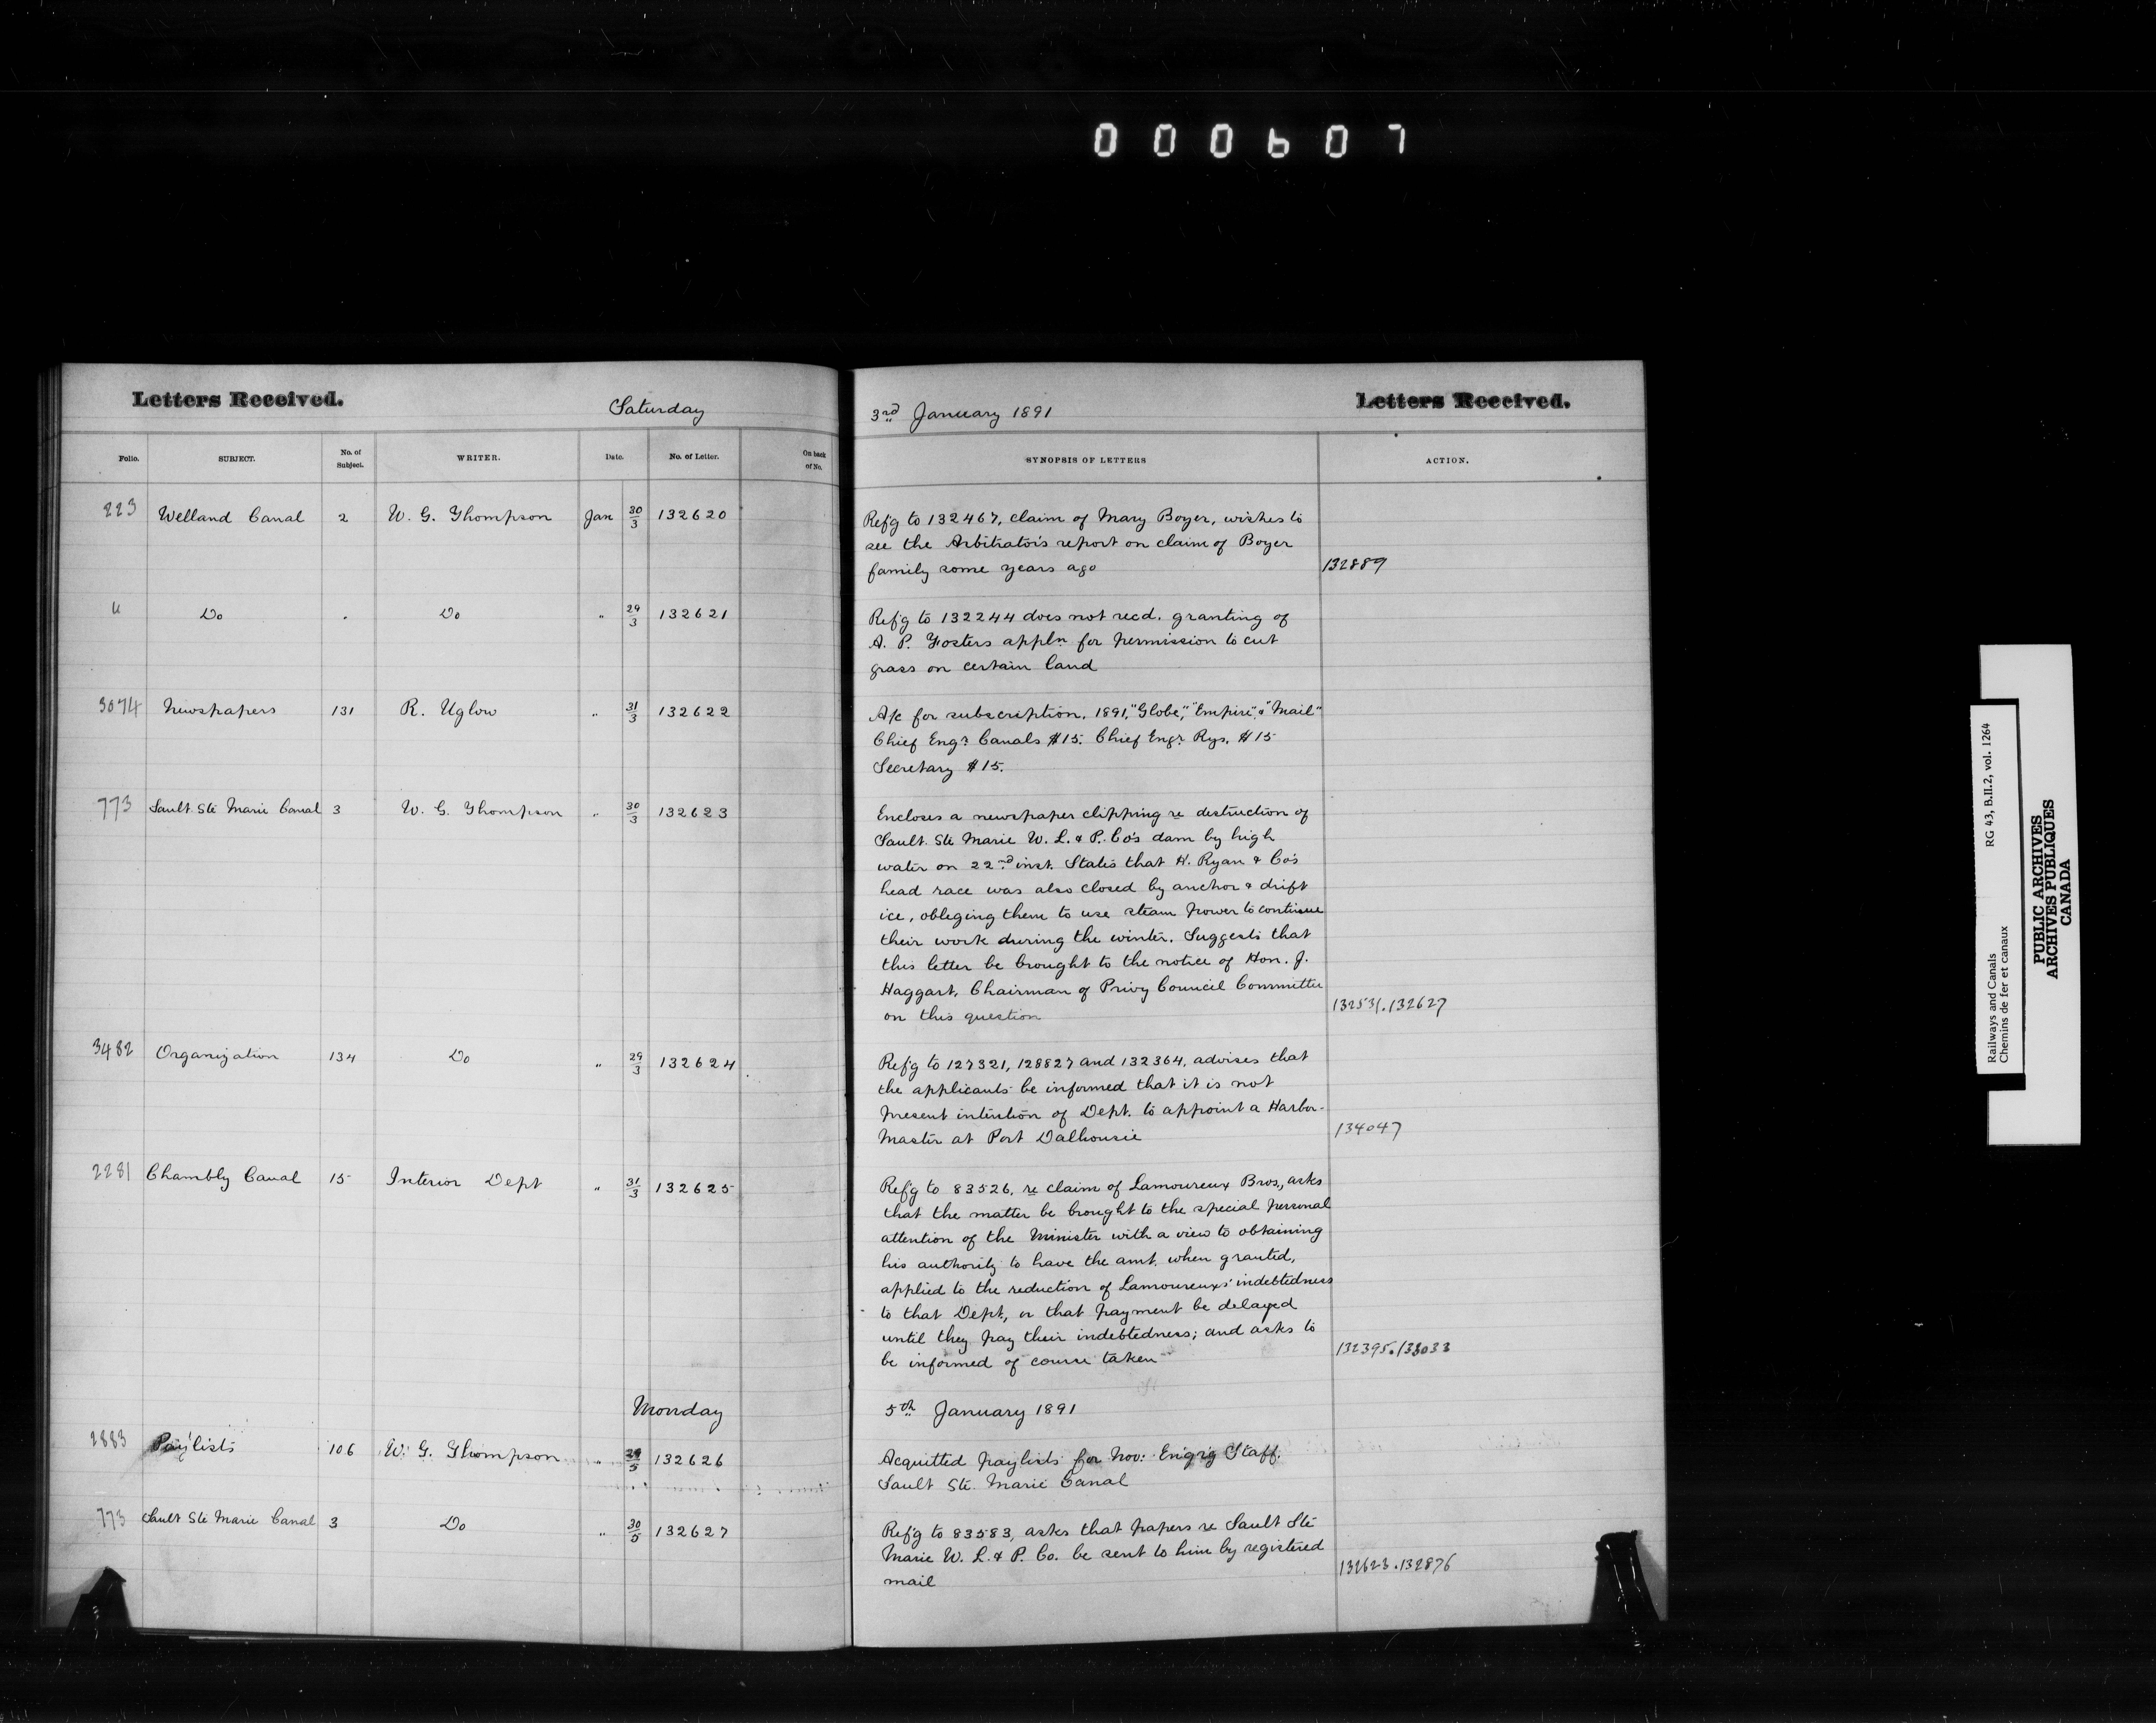 000607
Letters Received.
Saturday
3rd January 1891
Letters Received.
Folio. SUBJECT. No. of Subject. WRITER. Date. No. of Letter. On back of No. SYNOPSIS OF LETTERS ACTION.
223 Welland Canal 2 W. G. Thompson Jan 30/3 132620
Ref'g to 132467, claim of Mary Boyer, wishes to
see the Arbitrator's report on claim of Boyer
family some years ago 132889
" Do . Do " 29/3 132621
Ref'g to 132244 does not recd. granting of
A. P. Fosters appln for permission to cut
grass on certain land
3074 Newspapers 131 R. Uglow " 31/3 132622
A/c for subscription, 1891, "Globe", "Empire", & "Mail"
Chief Engr. Canals $15. Chief Engr. Rys. $15
Secretary $15.
773 Sault Ste Marie Canal 3 W. G. Thompson " 30/3 132623
Encloses a newspaper clipping re destruction of
Sault Ste Marie W. L. & P. Co's dam by high
water on 22nd inst. States that H. Ryan & Co's
head race was also closed by anchor & drift
ice, obleging them to use steam power to continue
their work during the winter. Suggests that
this letter be brought to the notice of Hon. J.
Haggart, Chairman of Privy Council Committee
on this question 132531.132627
3482 Organization 134 Do " 29/3 132624
Ref'g to 127321, 128827 and 132364, advises that
the applicants be informed that it is not
present intention of Dept. to appoint a Harbor-
Master at Port Dalhousie 134047
2281 Chambly Canal 15 Interior Dept " 31/3 132625
Ref'g to 83526, re claim of Lamoureux Bros., asks
that the matter be brought to the special personal
attention of the Minister with a view to obtaining
his authority to have the amt. when granted,
applied to the reduction of Lamoureux' indebtedness
to that Dept., or that payment be delayed
until they pay their indebtedness; and asks to
be informed of course taken 132395.133033
Monday
5th January 1891
2883 Paylists 106 W. G. Thompson " 29/5 132626
Acquitted paylists for Nov: Eng'g Staff.
Sault Ste. Marie Canal
773 Sault Ste Marie Canal 3 Do " 30/5 132627
Ref'g to 83583, asks that papers re Sault Ste
Marie W. L. & P. Co. be sent to him by registered
mail 132623.132876
Railways and Canals RG 43, B.II.2, vol. 1264
Chemins de fer et canaux
PUBLIC ARCHIVES
ARCHIVES PUBLIQUES
CANADA